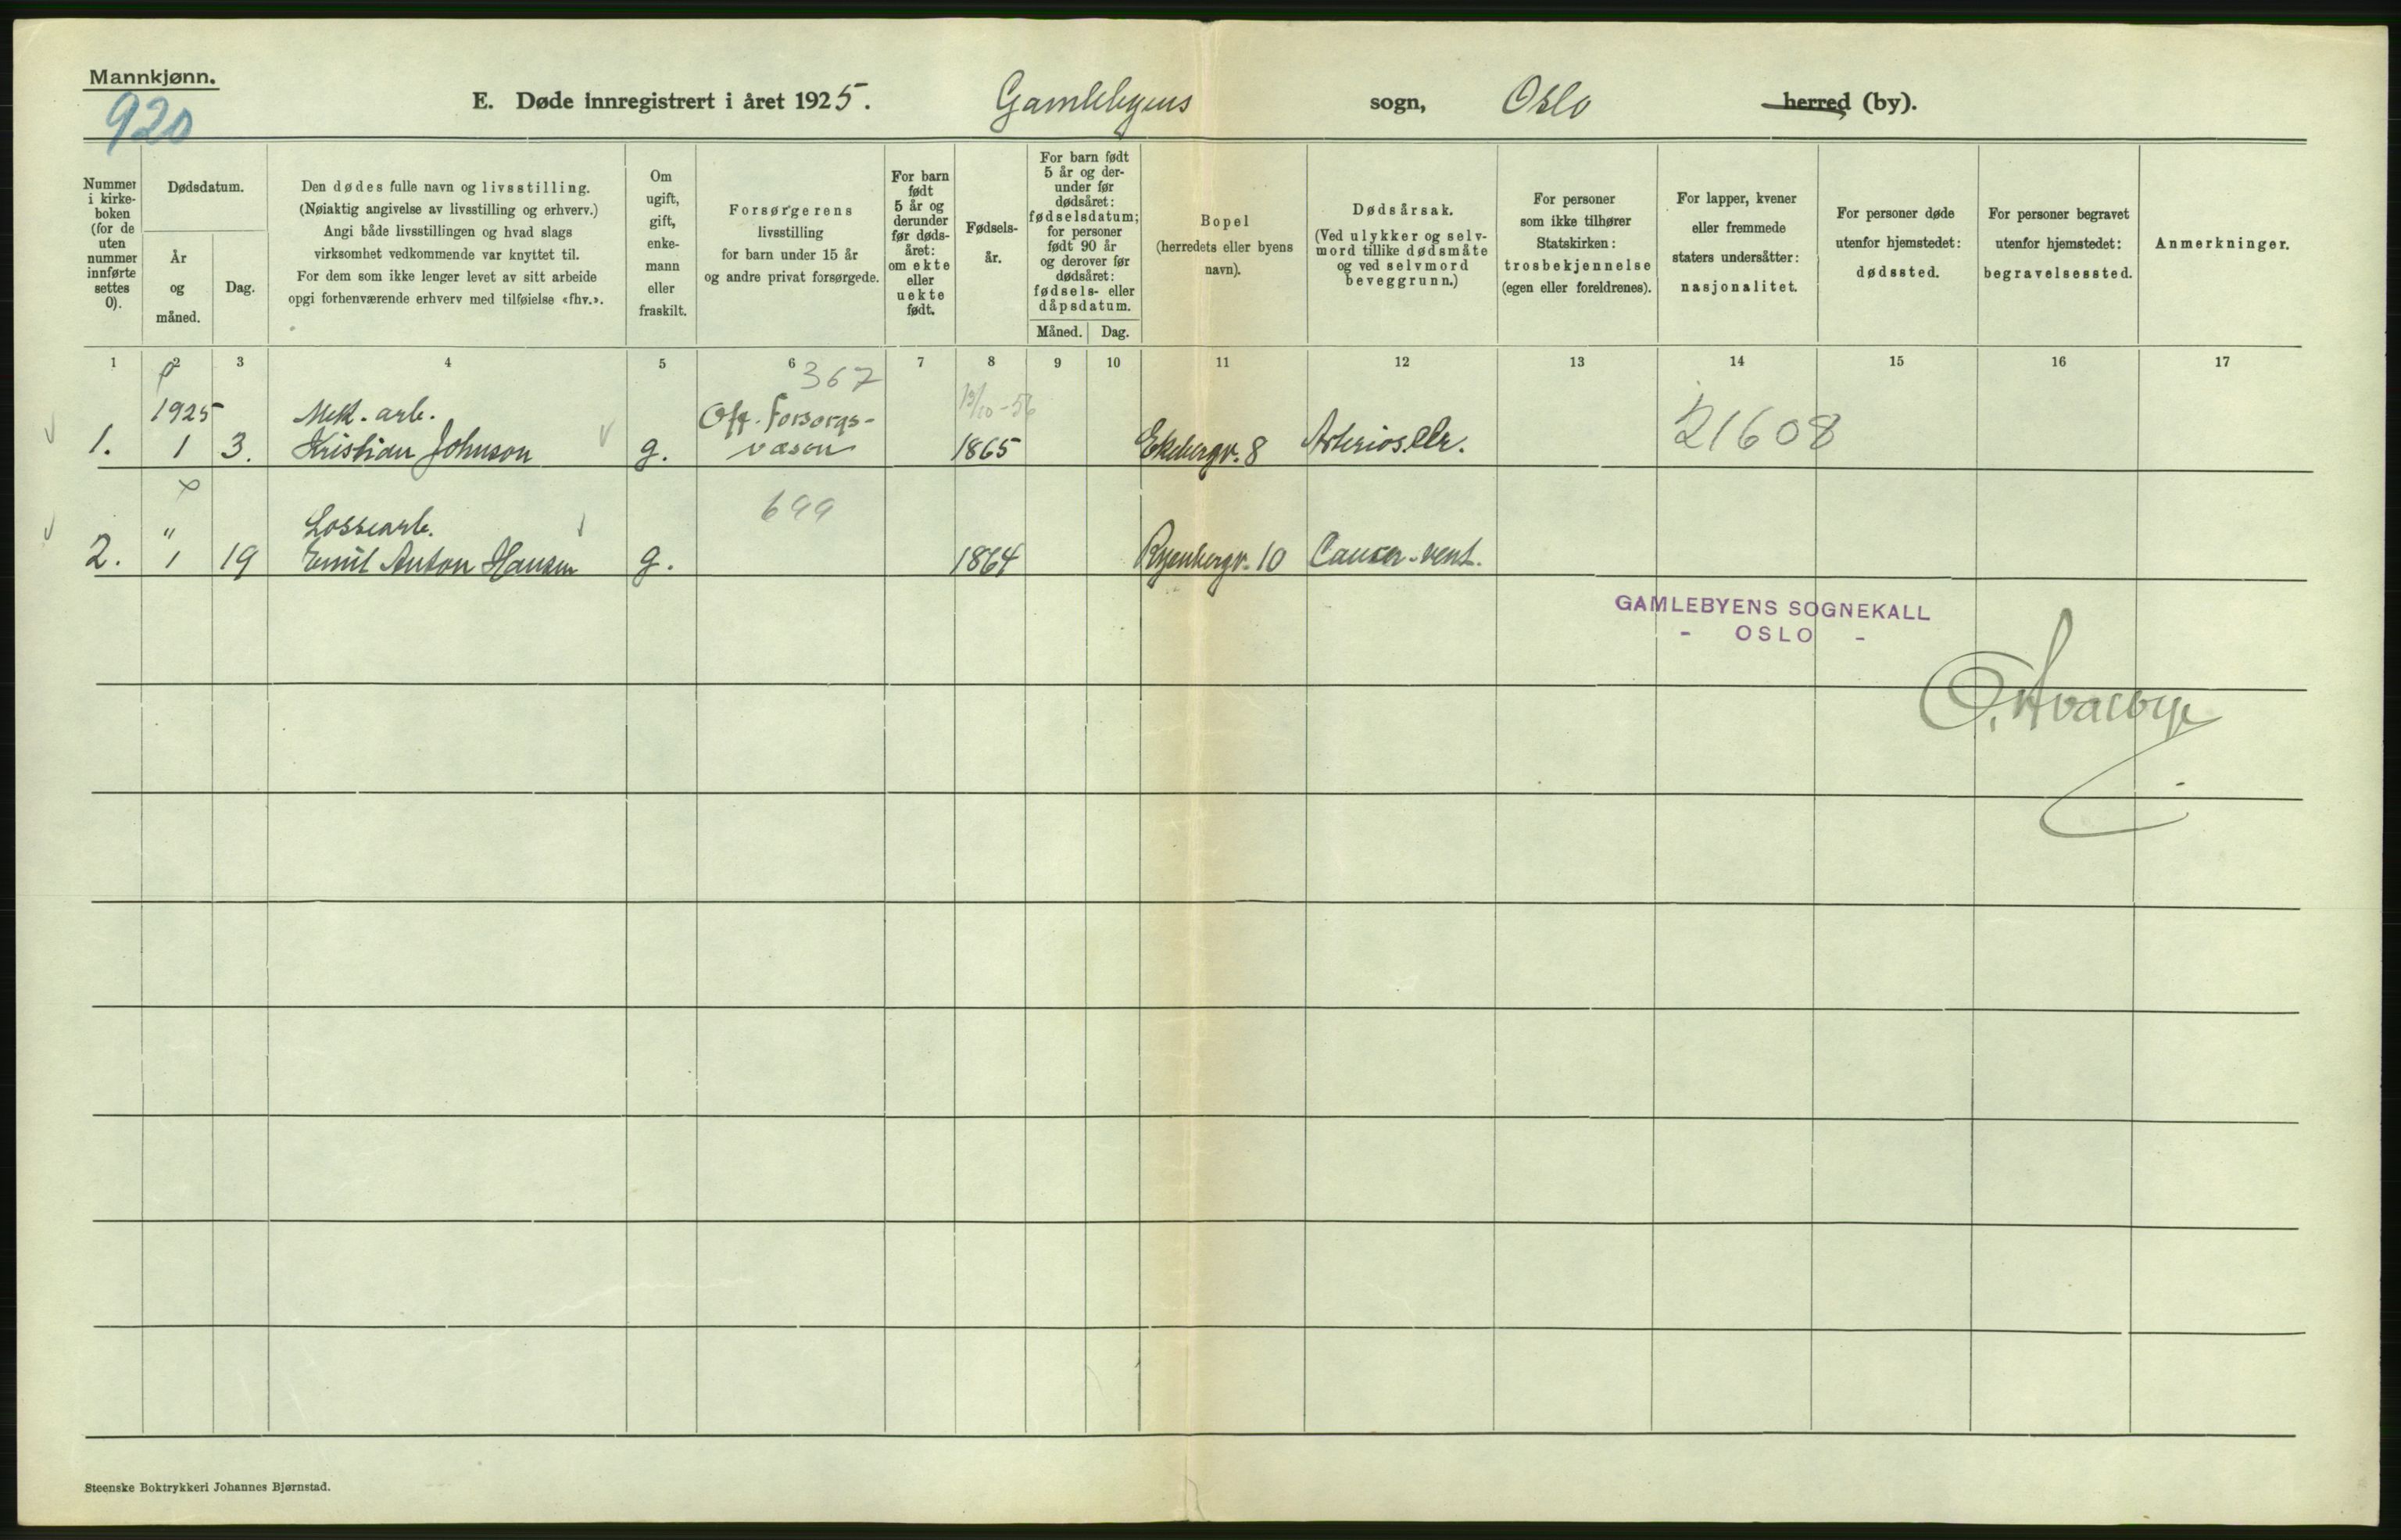 Mannkjønn.
920
E. Døde innregistrert i året 1925. Gamlebyens sogn, Oslo herred (by).
Nummer
i kirke-
boken
(for de
uten
nummer
innførte
settes
0).
Dødsdatum.
År
og
måned.
Dag.
Den dødes fulle navn og livsstilling.
(Nøiaktig angivelse av livsstilling og erhverv.)
Angi både livsstillingen og hvad slags
virksomhet vedkommende var knyttet til.
For dem som ikke lenger levet av sitt arbeide
opgi forhenværende erhverv med tilføielse «fhv.».
Om
ugift,
gift,
enke-
mann
eller
fraskilt.
Forsørgerens
livsstilling
for barn under 15 år
og andre privat forsørgede.
For barn
født
5 år og
derunder
før døds-
året:
om ekte
eller
uekte
født.
Fødsels-
år.
For barn født
5 år og der-
under før
dødsåret:
fødselsdatum;
for personer
født 90 år
og derover før
dødsåret:
fødsels- eller
dåpsdatum.
Måned. Dag.
Bopel
(herredets eller byens
navn).
Dødsårsak.
(Ved ulykker og selv-
mord tillike dødsmåte
og ved selvmord
beveggrunn.)
For personer
som ikke tilhører
Statskirken:
trosbekjennelse
(egen eller foreldrenes).
For lapper, kvener
eller fremmede
staters undersåtter:
nasjonalitet.
For personer døde
utenfor hjemstedet:
dødssted.
For personer begravet
utenfor hjemstedet:
begravelsessted.
Anmerkninger.
1 2 3 4 5 6 7 8 9 10 11 12 13 14 15 16 17
367
1925 Mek. arb. Off. Forsorgs- 13/10-56
1. 1 3. Kristian Johnson g. væsen 1865 Ekebergv. 8 Arterioscler. 21608
699
" Lossearb.
2. 1 19 Emil Anton Hansen g. 1864 Ryenbergv. 10 Cancer. vent.
GAMLEBYENS SOGNEKALL
- OSLO -
Steenske Boktrykkeri Johannes Bjørnstad.